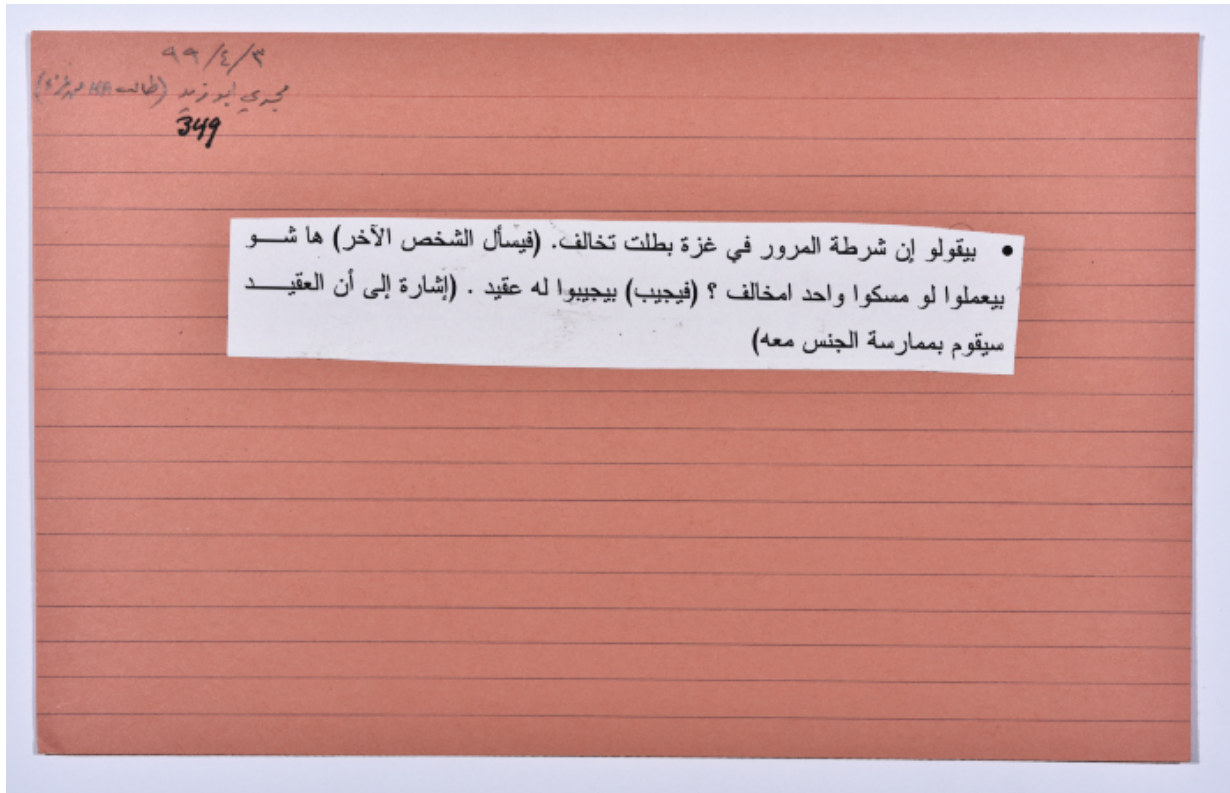 ٩٩/٤/٣
مجدي ابو زيد (طالب MA من غزة)
349
• بيقولو إن شرطة المرور في غزة بطلت تخالف. (فيسأل الشخص الآخر) ها شـــو
بيعملوا لو مسكوا واحد امخالف ؟ (فيجيب) بيجيبوا له عقيد . (إشارة إلى أن العقيـــد
سيقوم بممارسة الجنس معه)